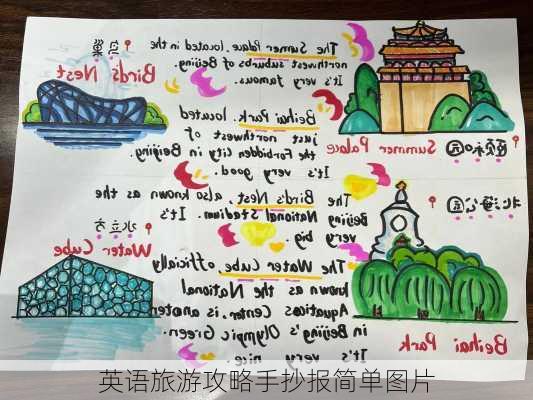 鸟巢
Bird's Nest
The Sumer Palace. located in the
northwest suburbs of Beijing.
It's very famous.
颐和园
Summer Palace
Beihai Park. located
just northwest of
the Forbidden City in Beijing
It's very good.
The Bird's Nest. also known as the
Beijing National Stadium. It's
very big.
水立方
Water Cube
北海公园
Beihai Park
The Water Cube. officially
known as the National
Aquatics Center, is
in Beijing's Olympic Green.
It's very nice.
英语旅游攻略手抄报简单图片